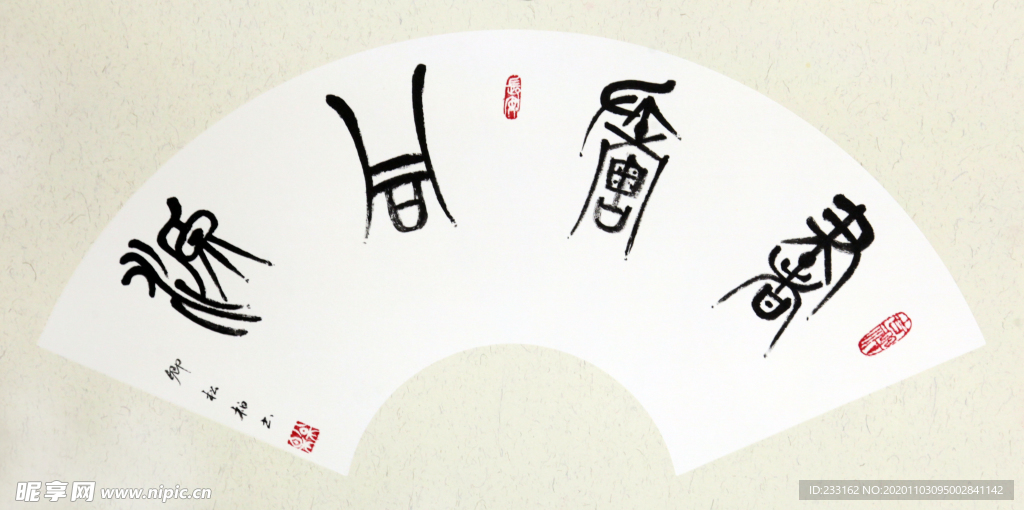 書畫同源
卿松柏书
昵享网 www.nipic.cn
ID:233162 NO:20201103095002841142